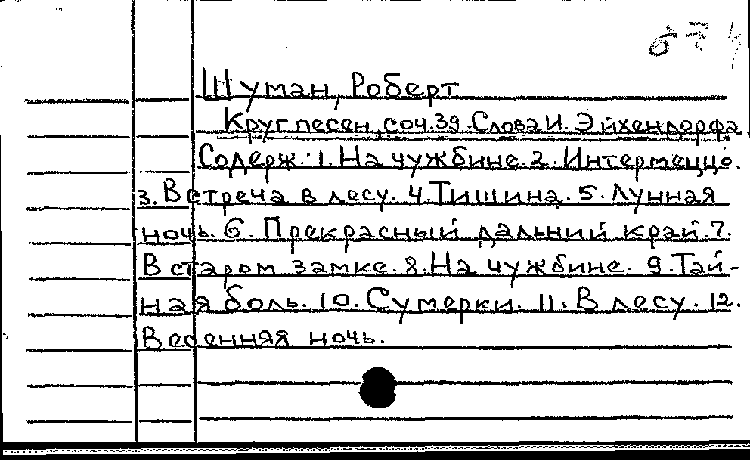 Шуман, Роберт
Круг песен, соч. 39. Слова И. Эйхендорфа.
Содерж.: 1. На чужбине. 2. Интермеццо.
3. Встреча в лесу. 4. Тишина. 5. Лунная
ночь. 6. Прекрасный дальний край. 7.
В старом замке. 8. На чужбине. 9. Тай-
ная боль. 10. Сумерки. 11. В лесу. 12.
Весенняя ночь.